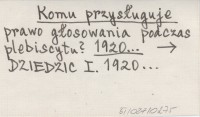 Komu przysługuje
prawo głosowania podczas
plebiscytu? 1920... →
DZIEDZIC I. 1920...